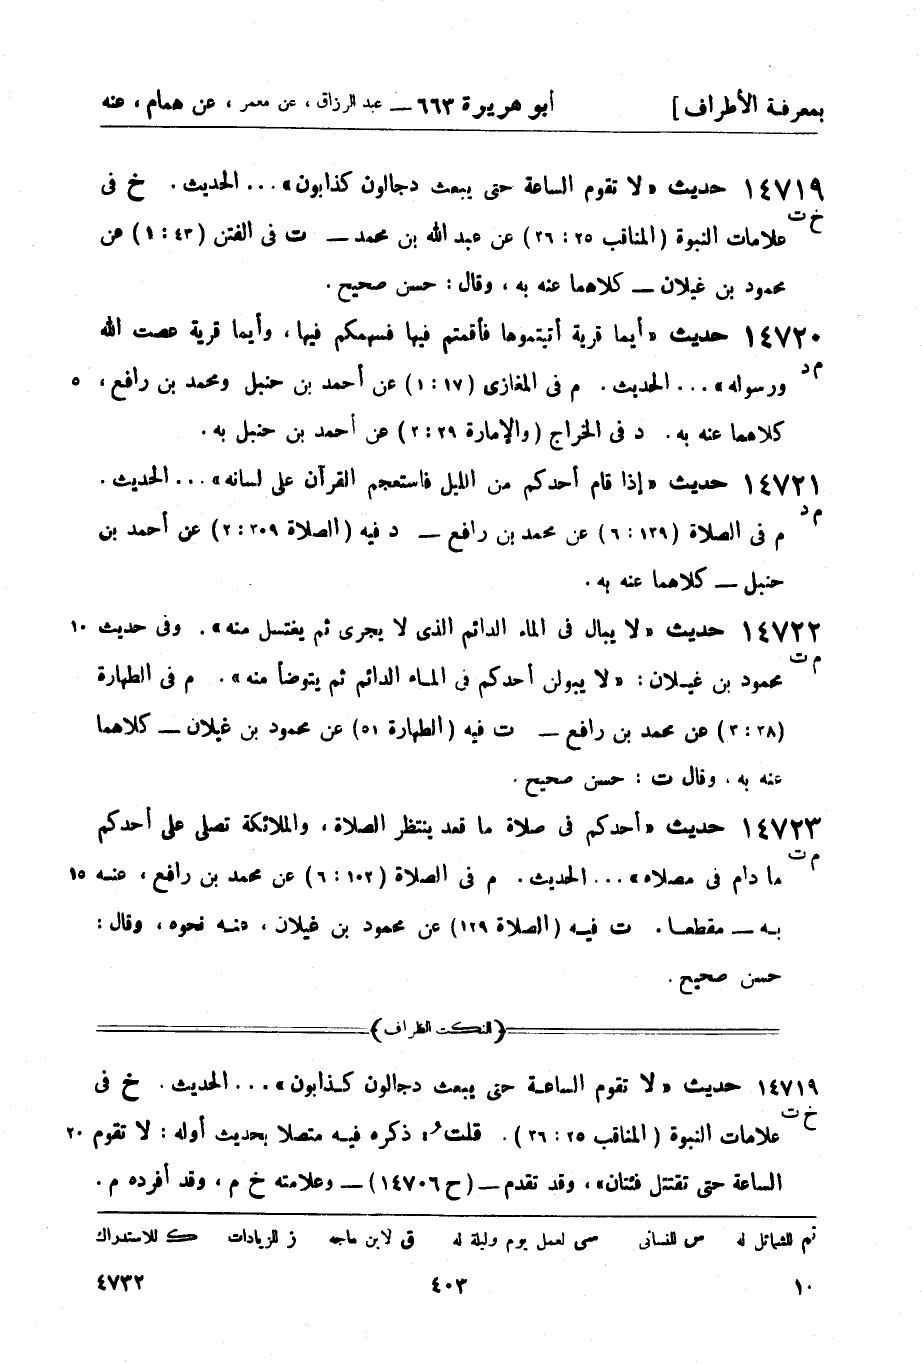 بمعرفة الأطراف] أبو هريرة ٦٦٣ — عبد الرزاق، عن معمر، عن همام، عنه
١٤٧١٩ حديث «لا تقوم الساعة حتى يبعث دجالون كذابون»... الحديث. خ فى
خ ت
علامات النبوة (المناقب ٢٥ : ٢٦) عن عبد الله بن محمد — ت فى الفتن (٤٣ : ١) عن
محمود بن غيلان — كلاهما عنه به، وقال: حسن صحيح.
١٤٧٢٠ حديث «أيما قرية أتيتموها فأقمتم فيها فسهمكم فيها، وأيما قرية عصت الله
م د
ورسوله»... الحديث. م فى المغازى (١٧ : ١) عن أحمد بن حنبل ومحمد بن رافع، ٥
كلاهما عنه به. د فى الخراج (والإمارة ٢٩ : ٢) عن أحمد بن حنبل به.
١٤٧٢١ حديث «إذا قام أحدكم من الليل فاستعجم القرآن على لسانه»... الحديث.
م د
م فى الصلاة (١٣٩ : ٦) عن محمد بن رافع — د فيه (الصلاة ٣٠٩ : ٢) عن أحمد بن
حنبل — كلاهما عنه به.
١٤٧٢٢ حديث «لا يبال فى الماء الدائم الذى لا يجرى ثم يغتسل منه». وفى حديث ١٠
م ت
محمود بن غيلان: «لا يبولن أحدكم فى الماء الدائم ثم يتوضأ منه». م فى الطهارة
(٢٨ : ٣) عن محمد بن رافع — ت فيه (الطهارة ٥١) عن محمود بن غيلان — كلاهما
عنه به، وقال ت: حسن صحيح.
١٤٧٢٣ حديث «أحدكم فى صلاة ما قعد ينتظر الصلاة، والملائكة تصلى على أحدكم
م ت
ما دام فى مصلاه»... الحديث. م فى الصلاة (١٠٢ : ٦) عن محمد بن رافع، عنه ١٥
به — مقطعا. ت فيه (الصلاة ١٢٩) عن محمود بن غيلان، عنه نحوه، وقال:
حسن صحيح.
(النكت الظراف)
١٤٧١٩ حديث «لا تقوم الساعة حتى يبعث دجالون كذابون»... الحديث. خ فى
خ ت
علامات النبوة (المناقب ٢٥ : ٢٦). قلت: ذكره فيه متصلا بحديث أوله: لا تقوم ٢٠
الساعة حتى تقتتل فئتان»، وقد تقدم — (ح ١٤٧٠٦) — وعلامته خ م، وقد أفرده م.
تم للشمائل له س للنسائى سى لعمل يوم وليلة له ق لابن ماجه ز للزيادات ك للاستدراك
١٠ ٤٠٣ ٤٧٣٢